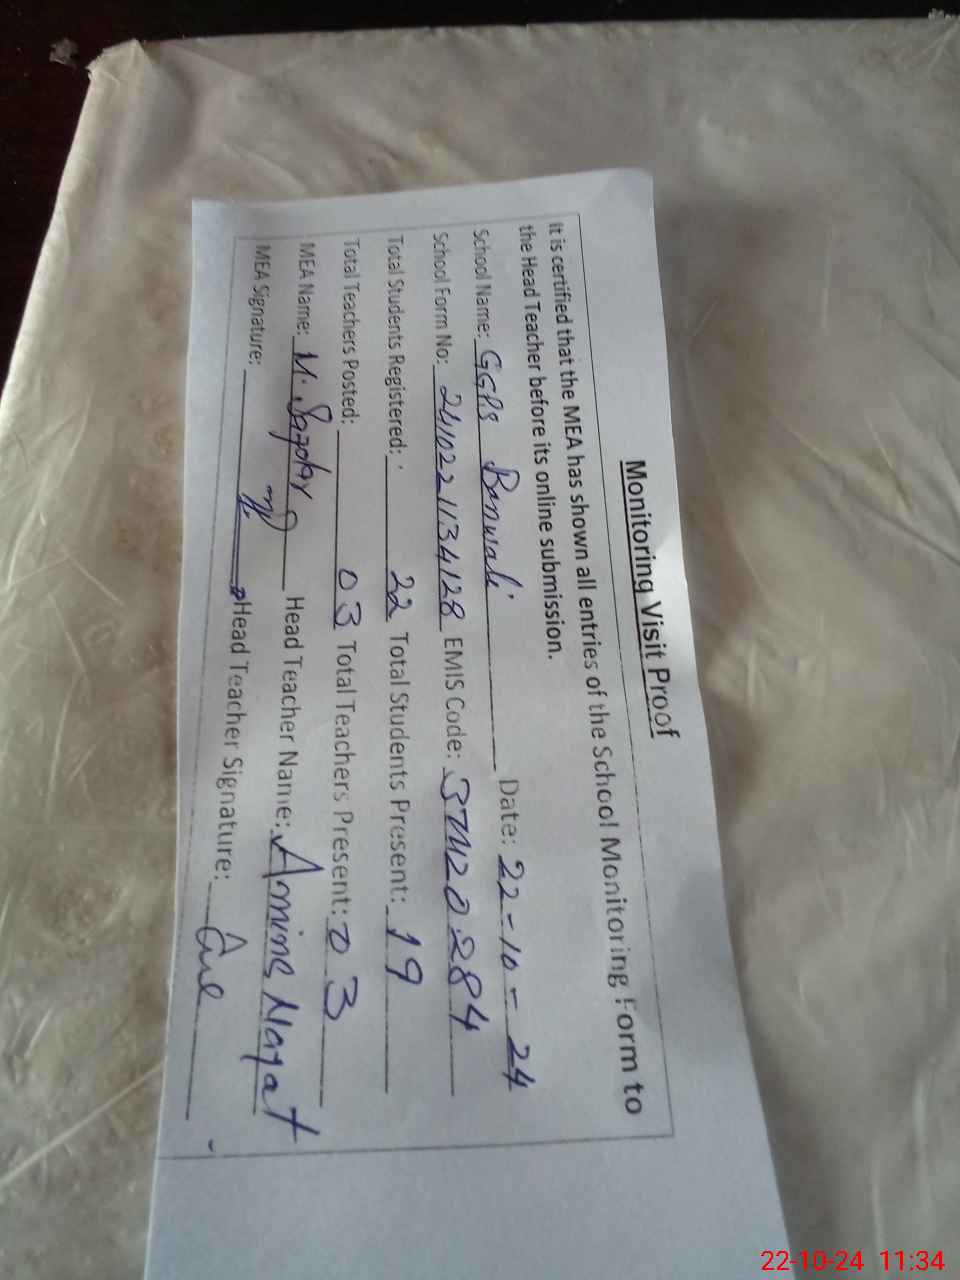 Monitoring Visit Proof
It is certified that the MEA has shown all entries of the School Monitoring Form to
the Head Teacher before its online submission.
School Name: GGPS Banwali Date: 22-10-24
School Form No: 2410221134128 EMIS Code: 37420284
Total Students Registered: 22 Total Students Present: 19
Total Teachers Posted: 03 Total Teachers Present: 03
MEA Name: M. Head Teacher Name: Amine
MEA Signature: Head Teacher Signature:
22-10-24 11:34